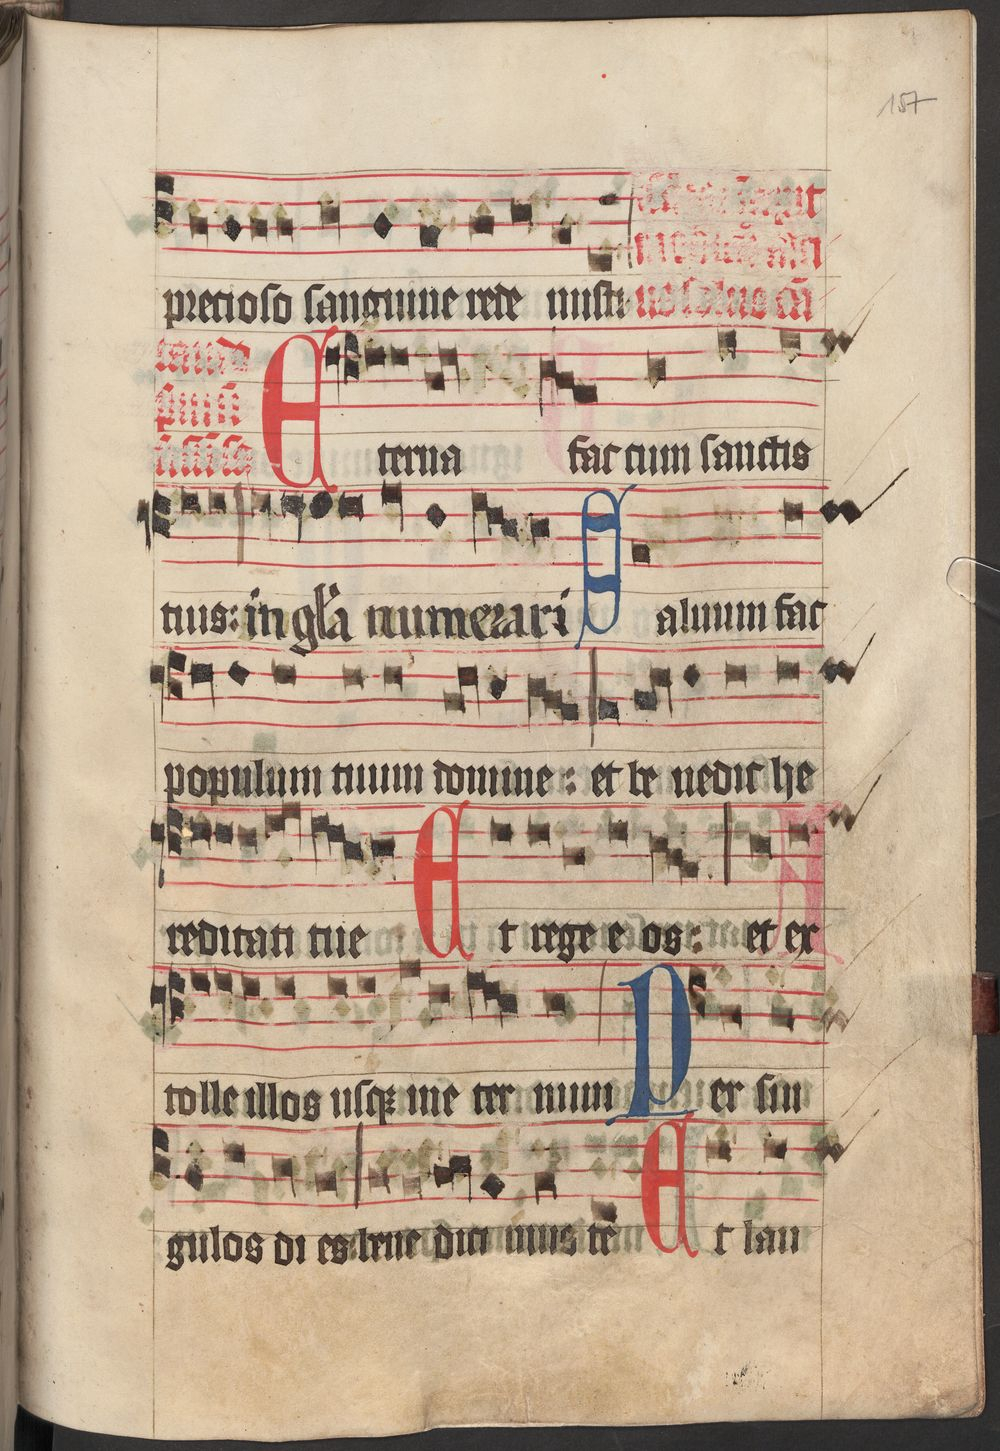 157
precioso sanguine rede misti
Eterna fac cum sanctis
tuis: in gl'a numerari Saluum fac
populum tuum domine: et be nedic he
reditati tue Et rege e os: et ex
tolle illos usq; ine ter num Per sin
gulos di es bene dici mus te Et lau